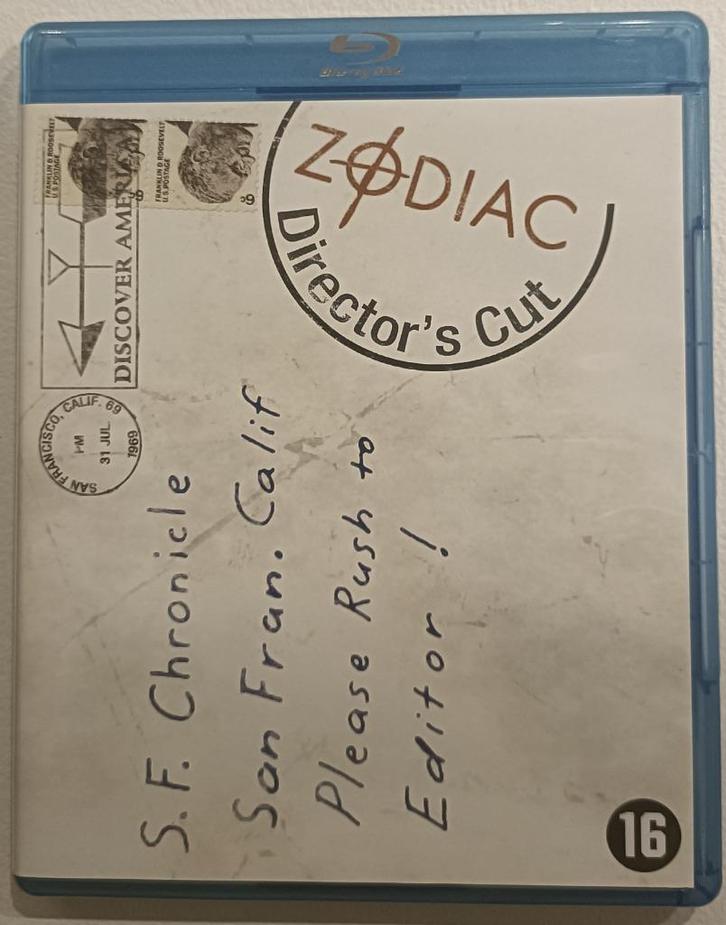 Blu-ray Disc
ZODIAC
Director's Cut
FRANKLIN D. ROOSEVELT
U.S. POSTAGE
6¢
FRANKLIN D. ROOSEVELT
U.S. POSTAGE
6¢
DISCOVER AMERICA
SAN FRANCISCO, CALIF. 69
PM
31 JUL
1969
S.F. Chronicle
San Fran. Calif
Please Rush to
Editor!
16